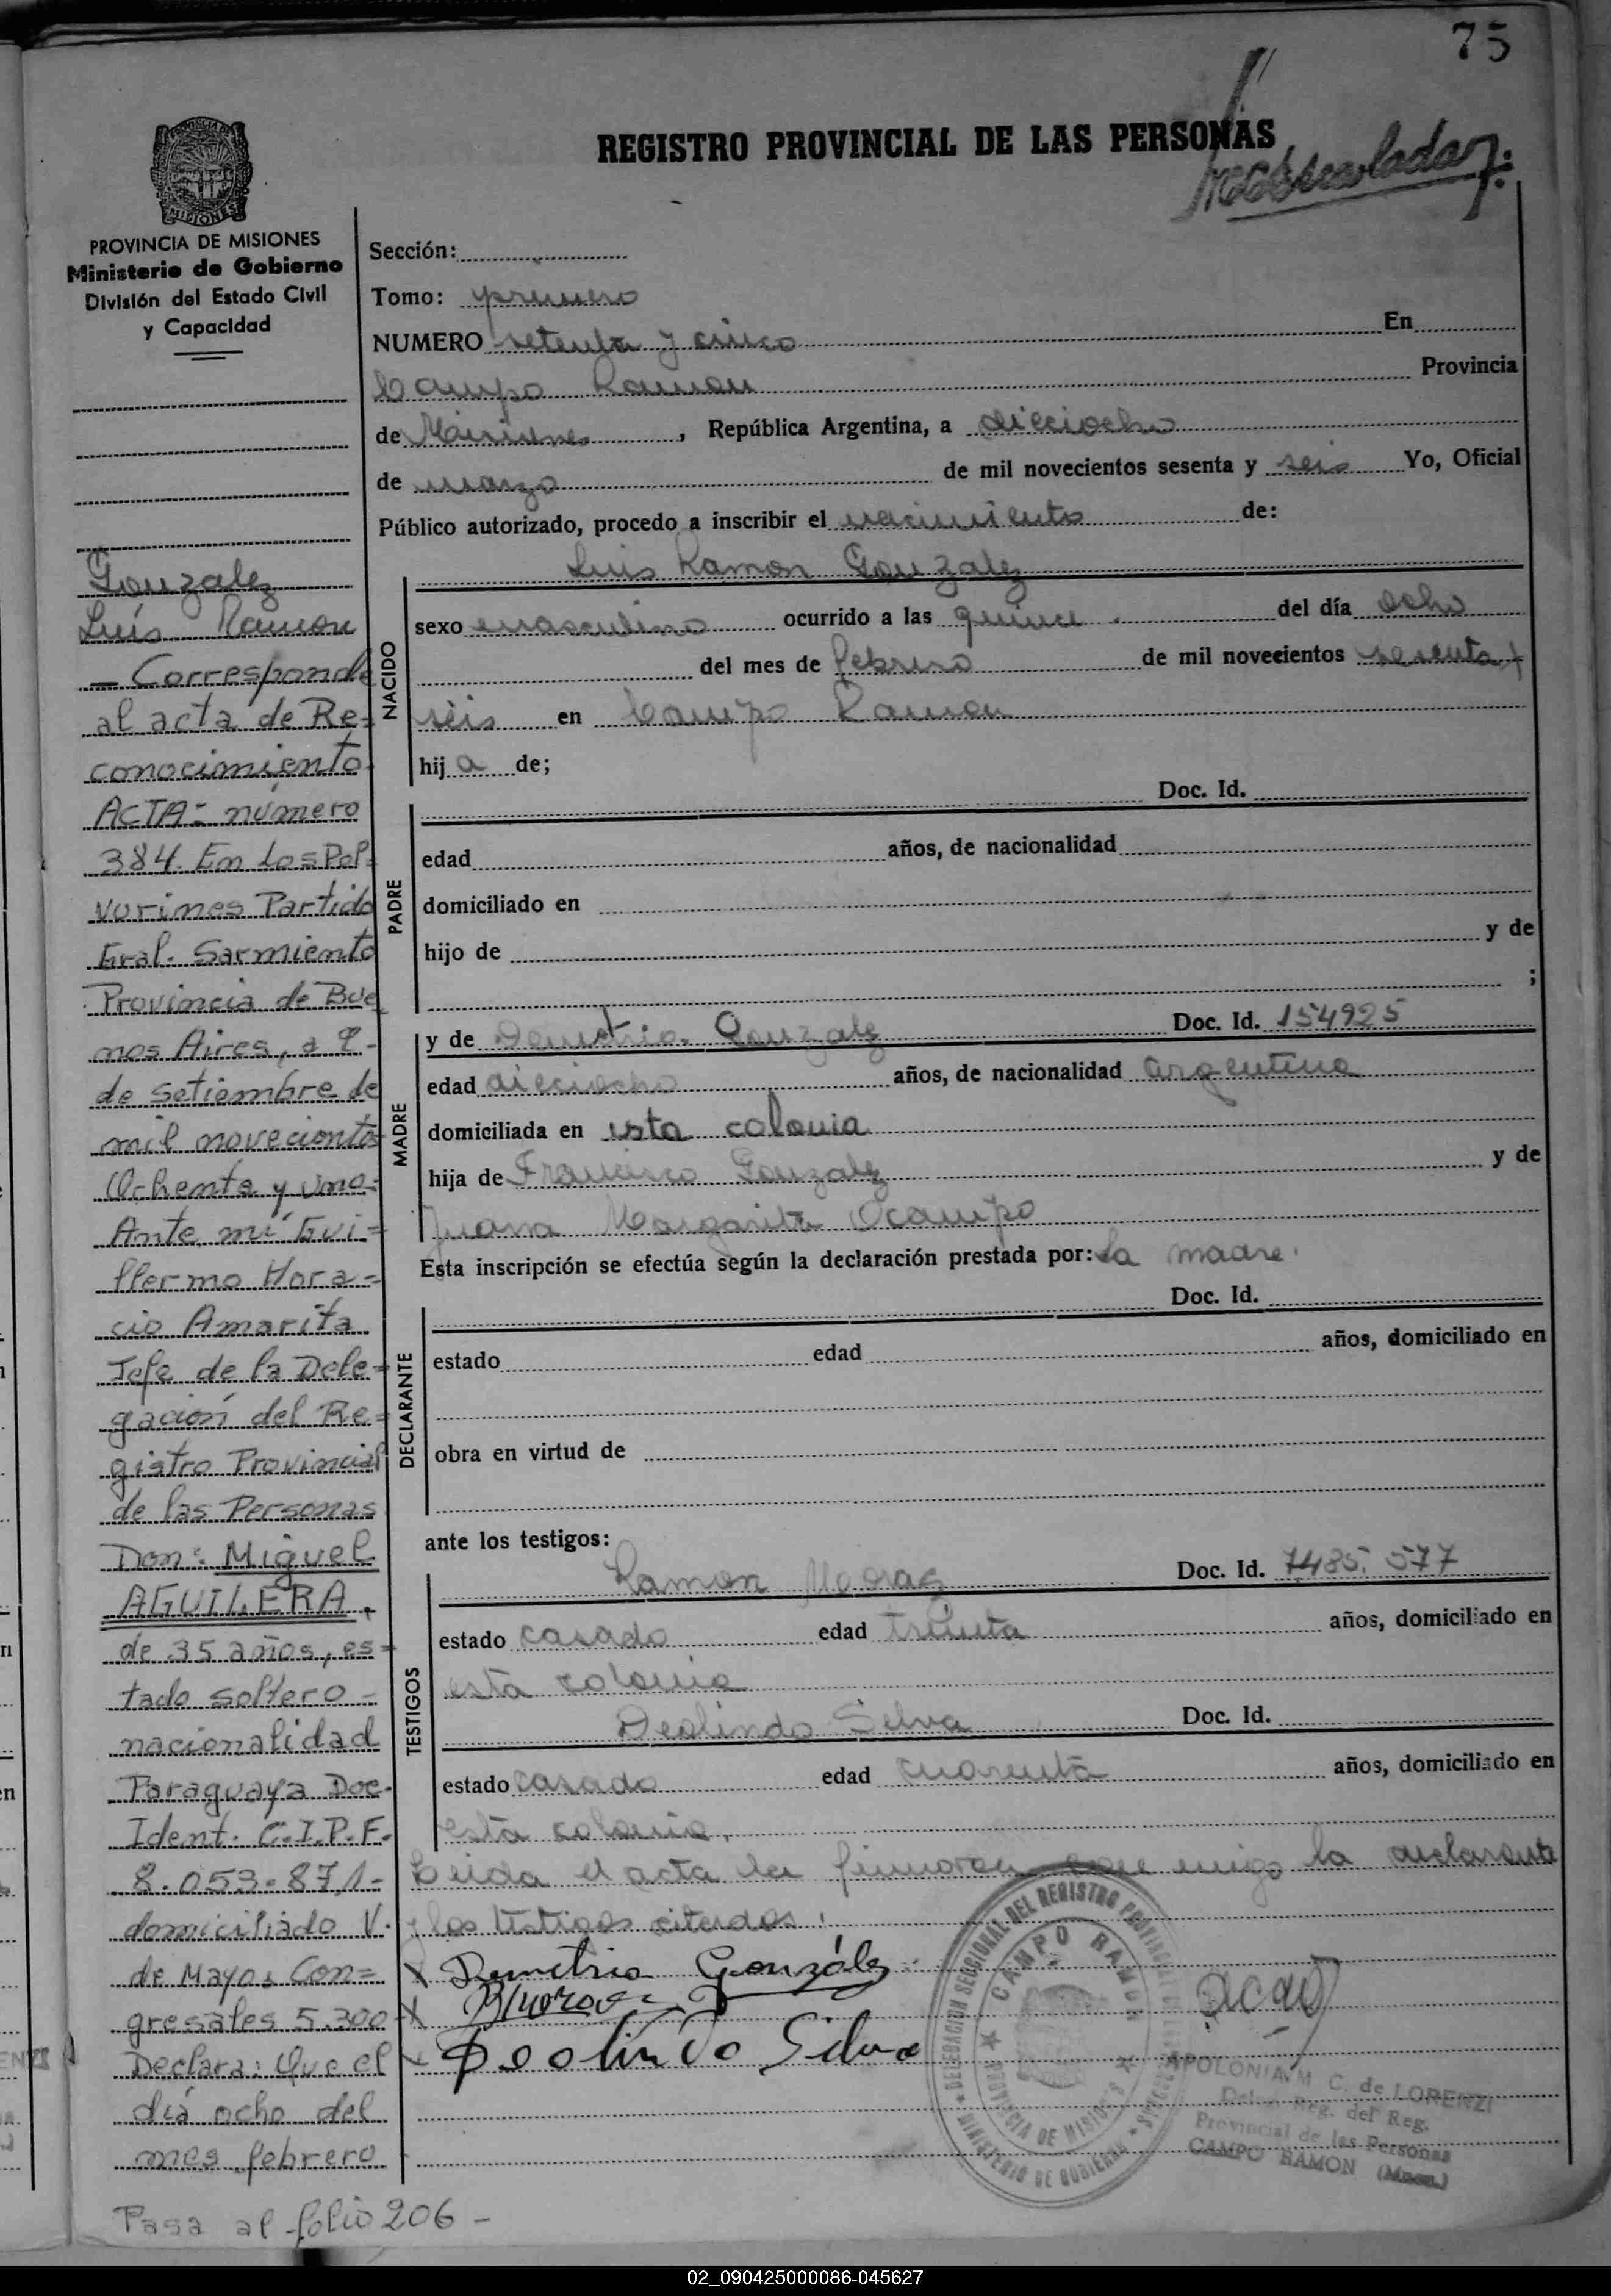 75
REGISTRO PROVINCIAL DE LAS PERSONAS
PROVINCIA DE MISIONES
Ministerio de Gobierno
División del Estado Civil
y Capacidad
Gonzalez
Luís Ramon
— Corresponde
al acta de Re-
conocimiento.
ACTA: número
384. En Los Pol-
vorines Partido
Gral. Sarmiento
Provincia de Bue
nos Aires, a 9-
de setiembre de
mil novecientos
Ochenta y uno=
Ante mí Gui=
llermo Hora=
cio Amarita
Jefe de la Dele=
gación del Re=
gistro Provincial
de las Personas
Don: Miguel
AGUILERA.
de 35 años, es=
tado soltero-
nacionalidad
Paraguaya Doc.
Ident. C.I.P.F.
8.053.871-
domiciliado V.
de Mayo, Con=
gresales 5.300
Declara: Que el
día ocho del
mes febrero
Pasa al folio 206 -
Sección:
Tomo: primero
NUMERO setenta y cinco En
Campo Ramon Provincia
de Misiones, República Argentina, a dieciocho
de marzo de mil novecientos sesenta y seis Yo, Oficial
Público autorizado, procedo a inscribir el nacimiento de:
Luis Ramon Gonzalez
NACIDO
sexo masculino ocurrido a las quince del día ocho
del mes de febrero de mil novecientos sesenta y
seis en Campo Ramon
hij a de;
Doc. Id.
PADRE
edad años, de nacionalidad
domiciliado en
hijo de y de
;
y de Demetria Gonzalez Doc. Id. 154925
MADRE
edad dieciocho años, de nacionalidad argentina
domiciliada en esta colonia
hija de Francisco Gonzalez y de
Juana Margarita Ocampo
Esta inscripción se efectúa según la declaración prestada por: La madre.
Doc. Id.
DECLARANTE
estado edad años, domiciliado en
obra en virtud de
ante los testigos:
Ramon Moraz Doc. Id. 7485.577
TESTIGOS
estado casado edad treinta años, domiciliado en
esta colonia
Deolindo Silva Doc. Id.
estado casado edad cuarenta años, domiciliado en
esta colonia.
Leida el acta la firmaron conmigo la declarante
y los testigos citados.
X Demetria González
X
X Deolindo Silva
DELEGACION SECCIONAL DEL REGISTRO PROVINCIAL DE LAS PERSONAS
CAMPO RAMON
PROVINCIA DE MISIONES
MINISTERIO DE GOBIERNO
APOLONIA M C. de LORENZI
Deleg. Reg. del Reg.
Provincial de las Personas
CAMPO RAMON (Mnes.)
02_090425000086-045627